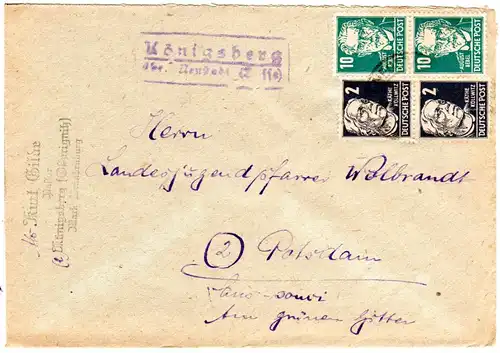 Königsberg
über Neustadt (Dosse)
10
DEUTSCHE POST
BEBEL
10
DEUTSCHE POST
BEBEL
2
KÄTHE
KOLLWITZ
DEUTSCHE POST
2
KÄTHE
KOLLWITZ
DEUTSCHE POST
Kurt Gilde
Pastor
Königsberg (Ostprignitz)
Mark Brandenburg
Herrn
Landesjugendpfarrer Wolbrandt
2 Potsdam
Sans-souci
Am grünen Gitter